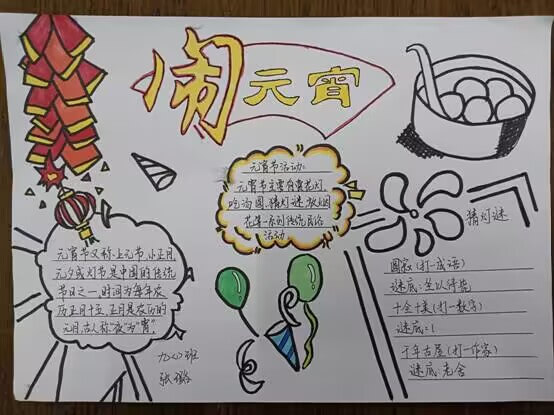 闹元宵
元宵节活动:
元宵节主要有赏花灯,
吃汤圆,猜灯谜,放烟
花等一系列传统民俗
活动
猜灯谜
元宵节又称上元节,小正月,
元夕或灯节是中国的传统
节日之一,时间为每年农
历正月十五,正月是农历的
元月,古人称"夜"为"宵"。
圆寂(打一成语)
谜底:坐以待毙
十全十美(打一数字)
谜底:1
千年古屋(打一作家)
谜底:老舍
九(1)班
张璐